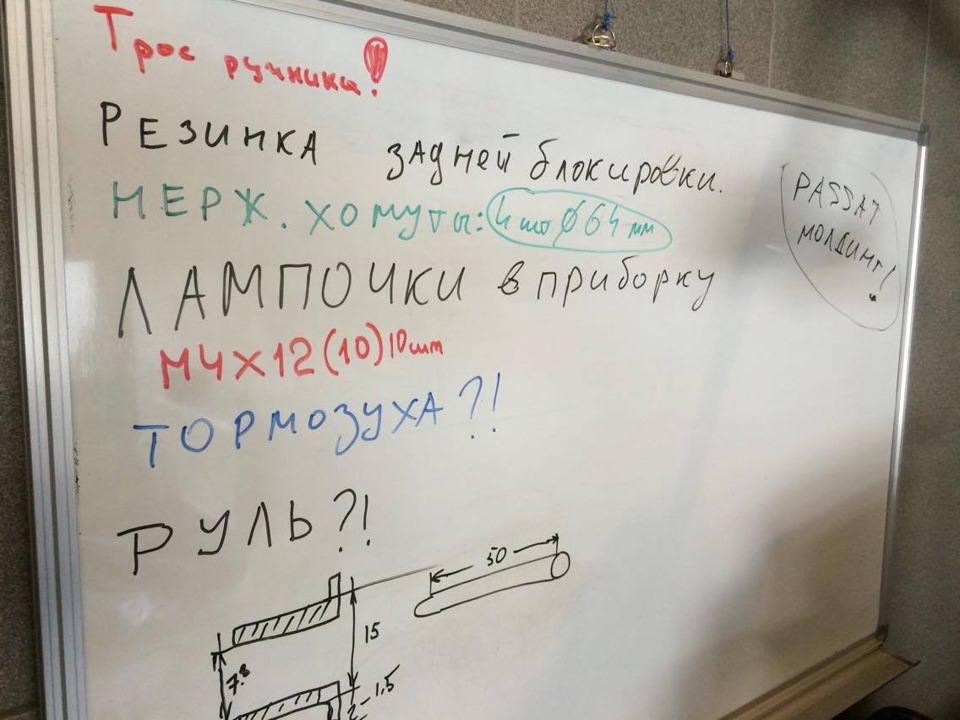 Трос ручника!
РЕЗИНКА задней блокировки.
НЕРЖ. хомуты: 4 шт ∅64 мм
ЛАМПОЧКИ в приборку
М4Х12(10)10шт
ТОРМОЗУХА?!
РУЛЬ?!
PASSAT
молдинг!
50
15
7.8
1.5
2